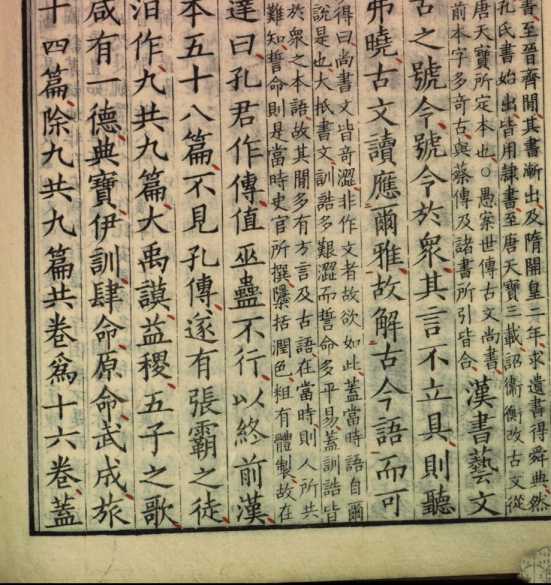 書至晉齊閒其書漸出及隋開皇二年求遺書得舜典然
孔氏書始出皆用隸書至唐天寶三載詔衞衡改古文從
唐天寶所定本也○愚案世傳古文尚書
前本字多奇古與蔡傳及諸書所引皆合
漢書藝文
古之號令號令於衆其言不立具則聽
弗曉古文讀應爾雅故解古今語而可
得曰尚書文皆奇澀非作文者故欲如此蓋當時語自爾
說是也大抵書文訓誥多艱澀而誓命多平易蓋訓誥皆
於衆之本語故其閒多有方言及古語在當時則人所共
難知誓命則是當時史官所撰櫽括潤色粗有體製故在
達曰孔君作傳值巫蠱不行以終前漢
本五十八篇不見孔傳遂有張霸之徒
汨作九共九篇大禹謨益稷五子之歌
咸有一德典寶伊訓肆命原命武成旅
十四篇除九共九篇共卷爲十六卷蓋